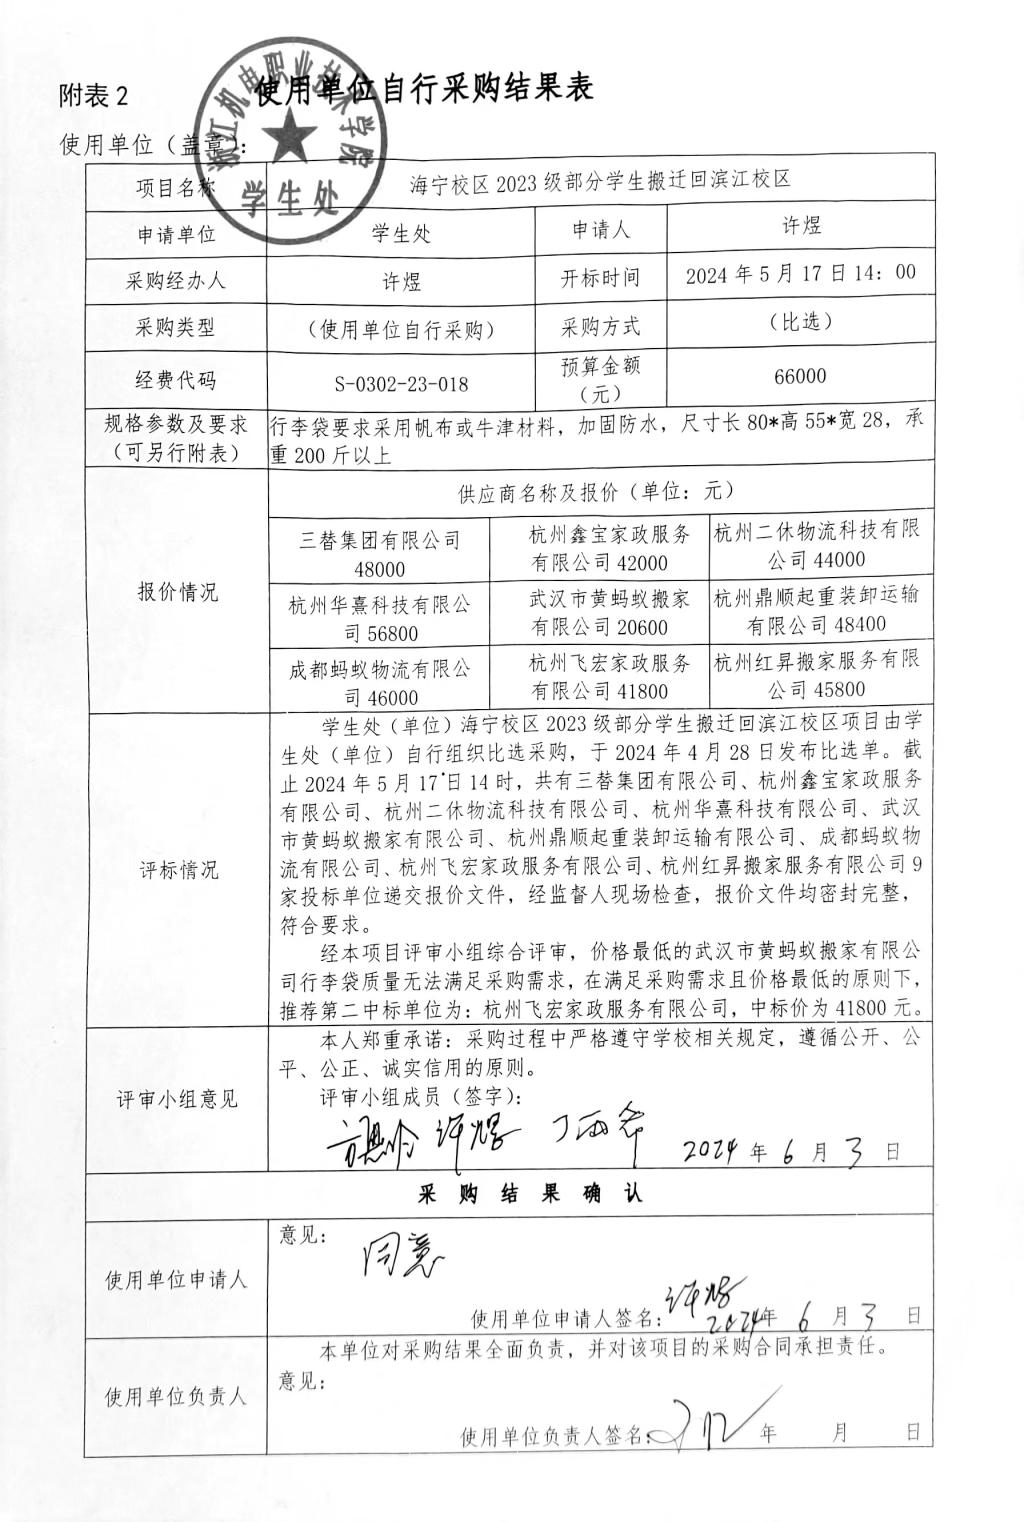 附表2
使用单位自行采购结果表
浙江机电职业技术学院
学生处
使用单位（盖章）：
项目名称 海宁校区2023级部分学生搬迁回滨江校区
申请单位 学生处 申请人 许煜
采购经办人 许煜 开标时间 2024年5月17日14：00
采购类型 （使用单位自行采购） 采购方式 （比选）
经费代码 S-0302-23-018 预算金额（元） 66000
规格参数及要求
（可另行附表）
行李袋要求采用帆布或牛津材料，加固防水，尺寸长80*高55*宽28，承
重200斤以上
报价情况
供应商名称及报价（单位：元）
三替集团有限公司
48000
杭州鑫宝家政服务
有限公司42000
杭州二休物流科技有限
公司44000
杭州华熹科技有限公
司56800
武汉市黄蚂蚁搬家
有限公司20600
杭州鼎顺起重装卸运输
有限公司48400
成都蚂蚁物流有限公
司46000
杭州飞宏家政服务
有限公司41800
杭州红昇搬家服务有限
公司45800
评标情况
学生处（单位）海宁校区2023级部分学生搬迁回滨江校区项目由学
生处（单位）自行组织比选采购，于2024年4月28日发布比选单。截
止2024年5月17日14时，共有三替集团有限公司、杭州鑫宝家政服务
有限公司、杭州二休物流科技有限公司、杭州华熹科技有限公司、武汉
市黄蚂蚁搬家有限公司、杭州鼎顺起重装卸运输有限公司、成都蚂蚁物
流有限公司、杭州飞宏家政服务有限公司、杭州红昇搬家服务有限公司9
家投标单位递交报价文件，经监督人现场检查，报价文件均密封完整，
符合要求。
经本项目评审小组综合评审，价格最低的武汉市黄蚂蚁搬家有限公
司行李袋质量无法满足采购需求，在满足采购需求且价格最低的原则下，
推荐第二中标单位为：杭州飞宏家政服务有限公司，中标价为41800元。
评审小组意见
本人郑重承诺：采购过程中严格遵守学校相关规定，遵循公开、公
平、公正、诚实信用的原则。
评审小组成员（签字）：
许煜
2024年6月3日
采购结果确认
使用单位申请人
意见：
同意
使用单位申请人签名：许煜
2024年6月3日
使用单位负责人
本单位对采购结果全面负责，并对该项目的采购合同承担责任。
意见：
使用单位负责人签名： 年 月 日